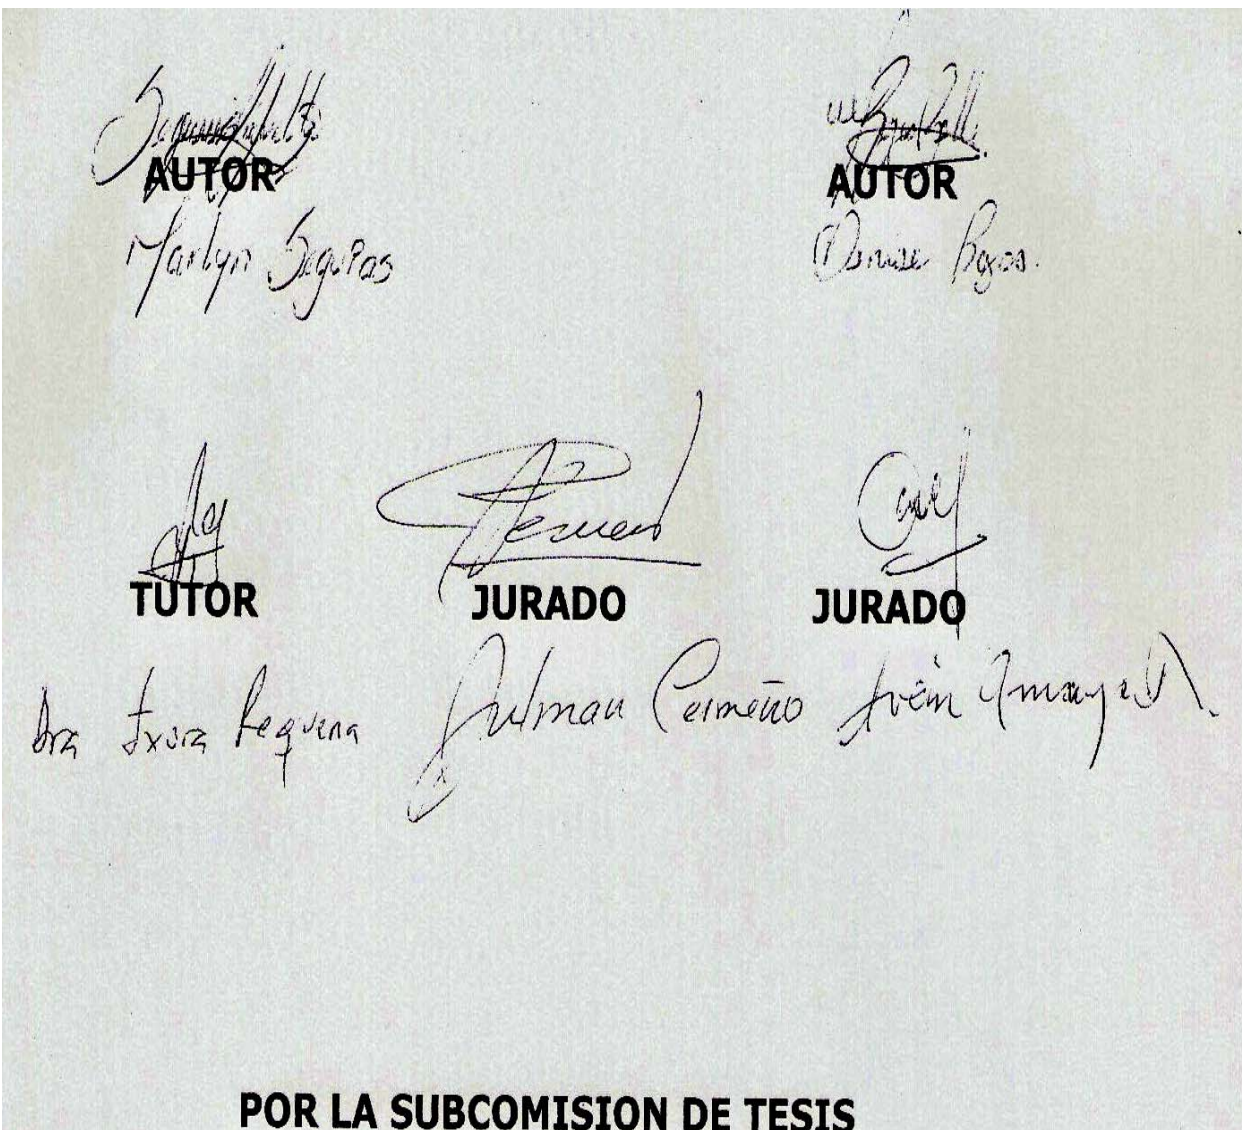 AUTOR AUTOR
Marlyn Seguias Denise Rojas.
TUTOR JURADO JURADO
Dra Ixora Requena Julman Cermeño Iván Amaya
POR LA SUBCOMISION DE TESIS